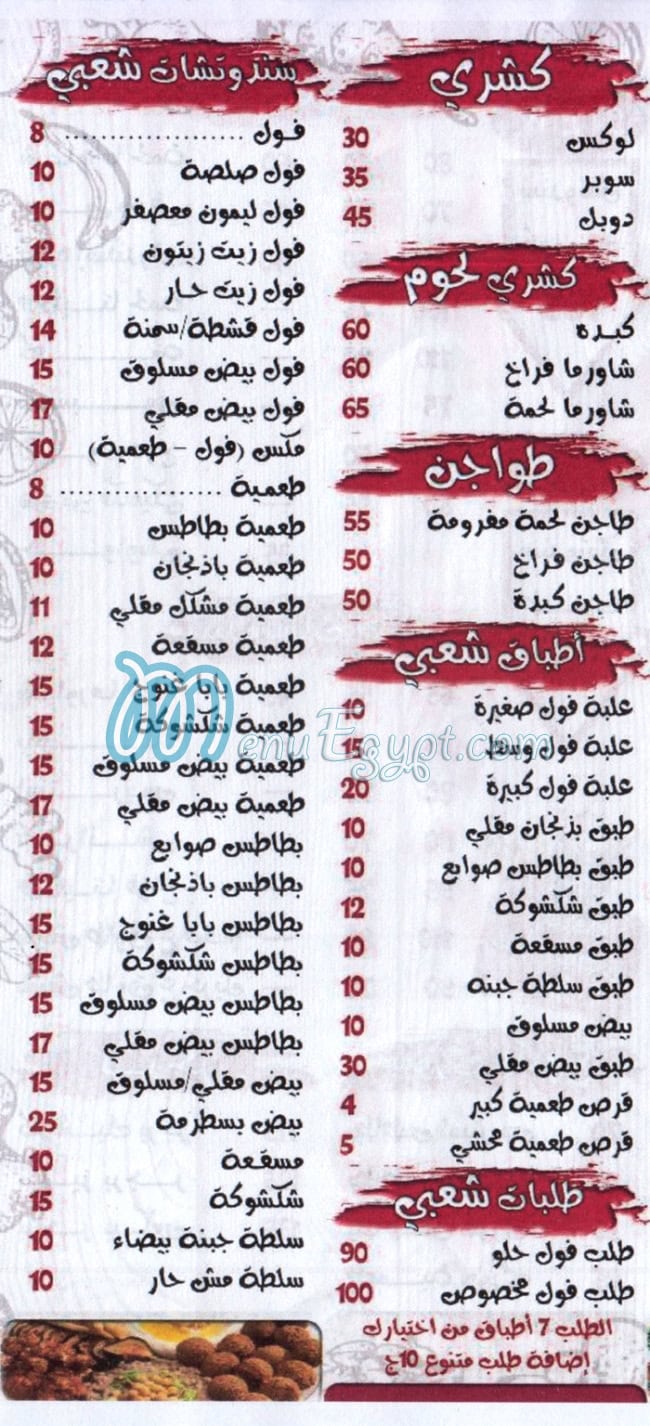 كشري
لوكس 30
سوبر 35
دوبل 45
كشري لحوم
كبده 60
شاورما فراخ 60
شاورما لحمة 65
طواجن
طاجن لحمة مفرومة 55
طاجن فراخ 50
طاجن كبدة 50
أطباق شعبي
علبة فول صغيرة 10
علبة فول وسط 15
علبة فول كبيرة 20
طبق بذنجان مقلي 10
طبق بطاطس صوابع 10
طبق شكشوكة 12
طبق مسقعة 10
طبق سلطة جبنه 10
بيض مسلوق 10
طبق بيض مقلي 30
قرص طعمية كبير 4
قرص طعمية محشي 5
طلبات شعبي
طلب فول حلو 90
طلب فول مخصوص 100
الطلب 7 أطباق من اختيارك
إضافة طلب متنوع 10ج
سندوتشات شعبي
فول .................. 8
فول صلصة 10
فول ليمون معصفر 10
فول زيت زيتون 12
فول زيت حار 12
فول قشطة/سمنة 14
فول بيض مسلوق 15
فول بيض مقلي 17
مكس (فول - طعمية) 10
طعمية .................. 8
طعمية بطاطس 10
طعمية باذنجان 10
طعمية مشكل مقلي 11
طعمية مسقعة 12
طعمية بابا غنوج 15
طعمية شكشوكة 15
طعمية بيض مسلوق 15
طعمية بيض مقلي 17
بطاطس صوابع 10
بطاطس باذنجان 12
بطاطس بابا غنوج 15
بطاطس شكشوكة 15
بطاطس بيض مسلوق 15
بطاطس بيض مقلي 17
بيض مقلي/مسلوق 15
بيض بسطرمة 25
مسقعة 10
شكشوكة 15
سلطة جبنة بيضاء 10
سلطة مش حار 10
MenuEgypt.com